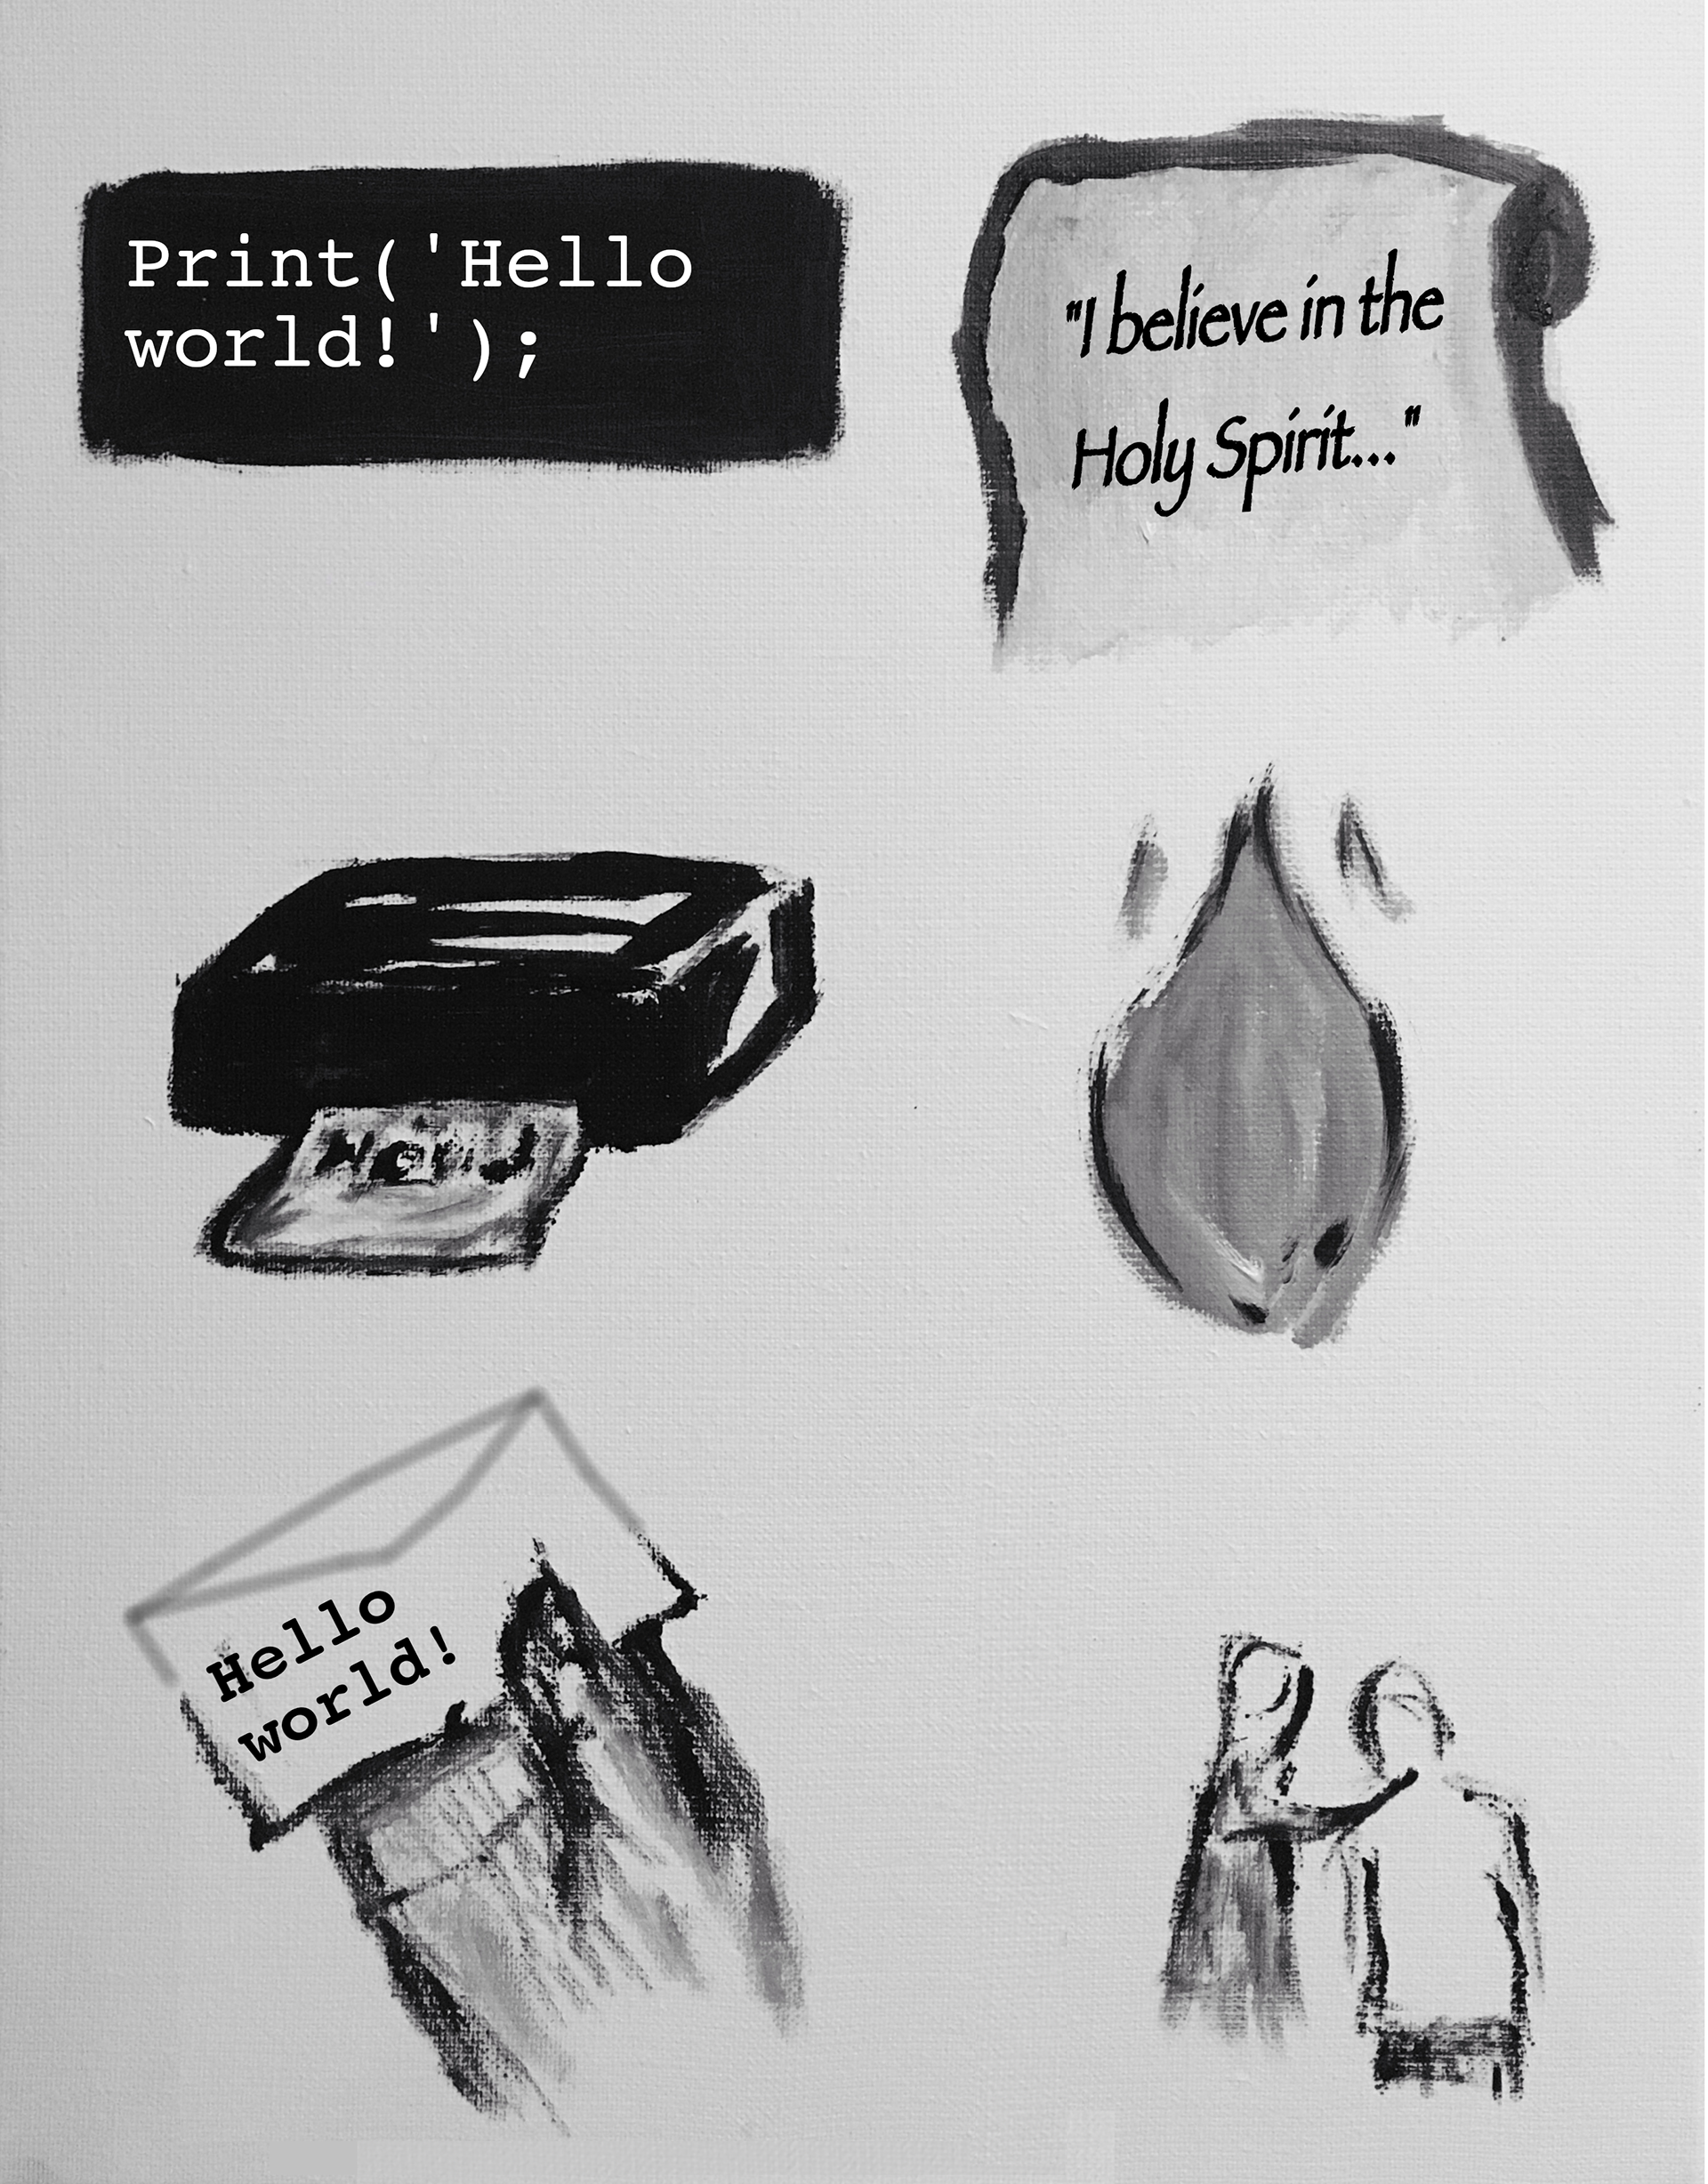 Print('Hello
world!');
"I believe in the
Holy Spirit..."
Hello
world!